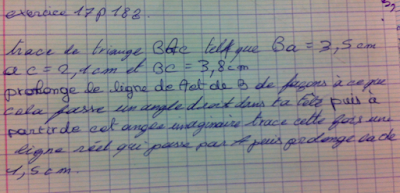 exercice 17 p 183.
trace le triange BAC tell que Ba = 3,5 cm
a c = 2,1 cm et BC = 3,8 cm
prolonge le ligne de A et de B de façons à ce que
cela fasse un angle droit dans ta tête puis à
partir de cet angle imaginaire trace cette fois une
ligne réel qui passe par A puis prolonge la de
1,5 cm.